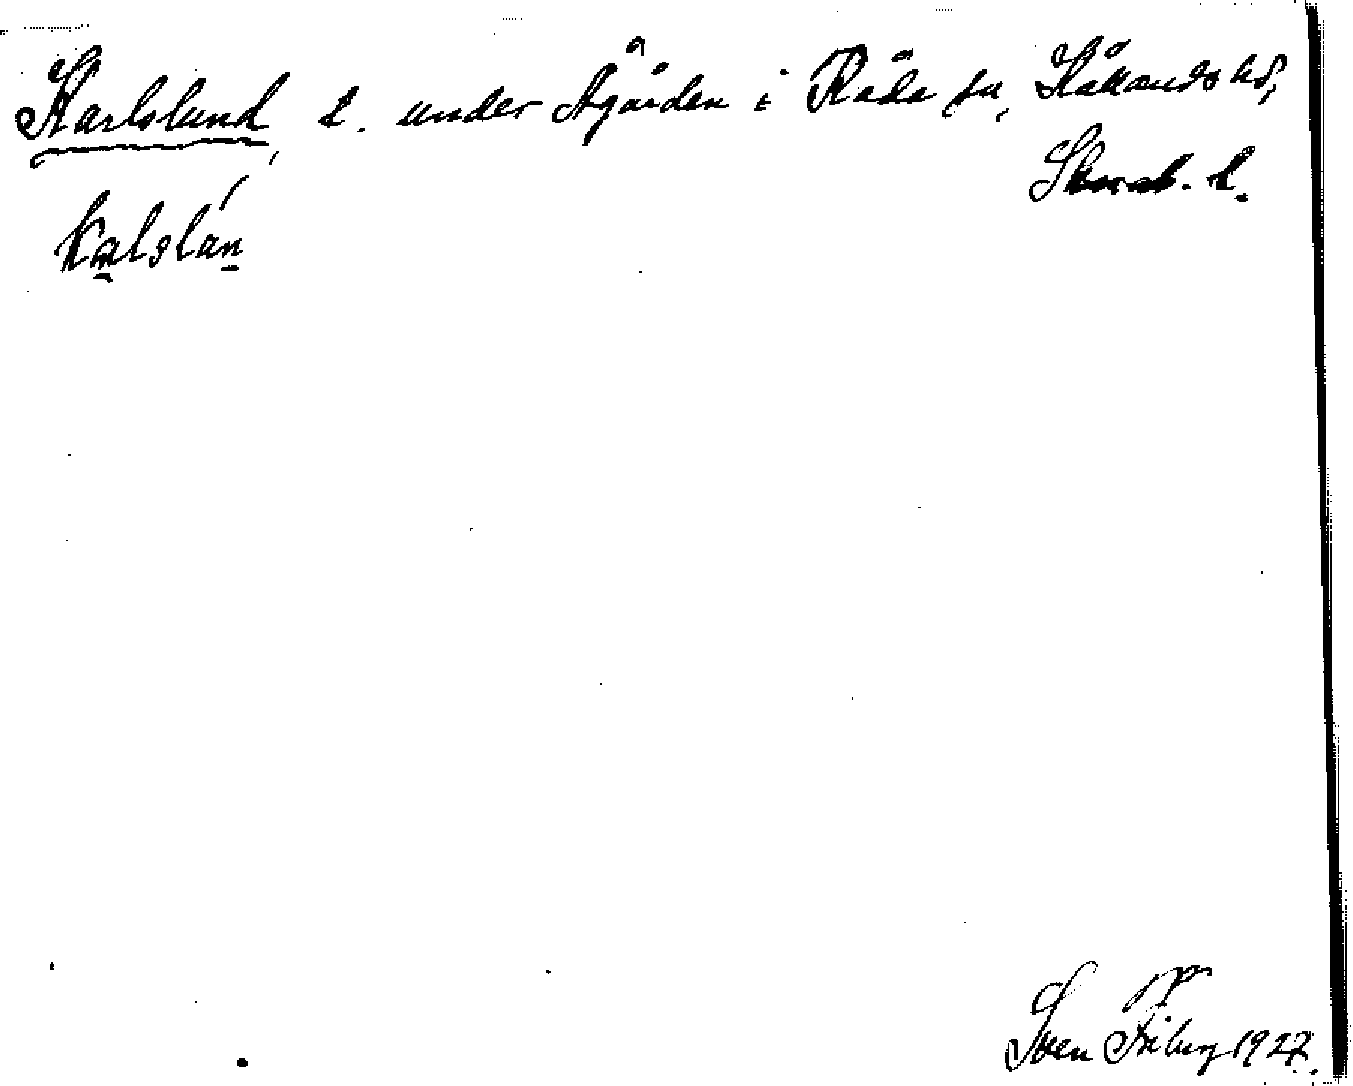 Karlslund, l. under Ågården i Råda sn, Kållands hd,
Skarab. l.
kalslán
Sven Friberg 1927.